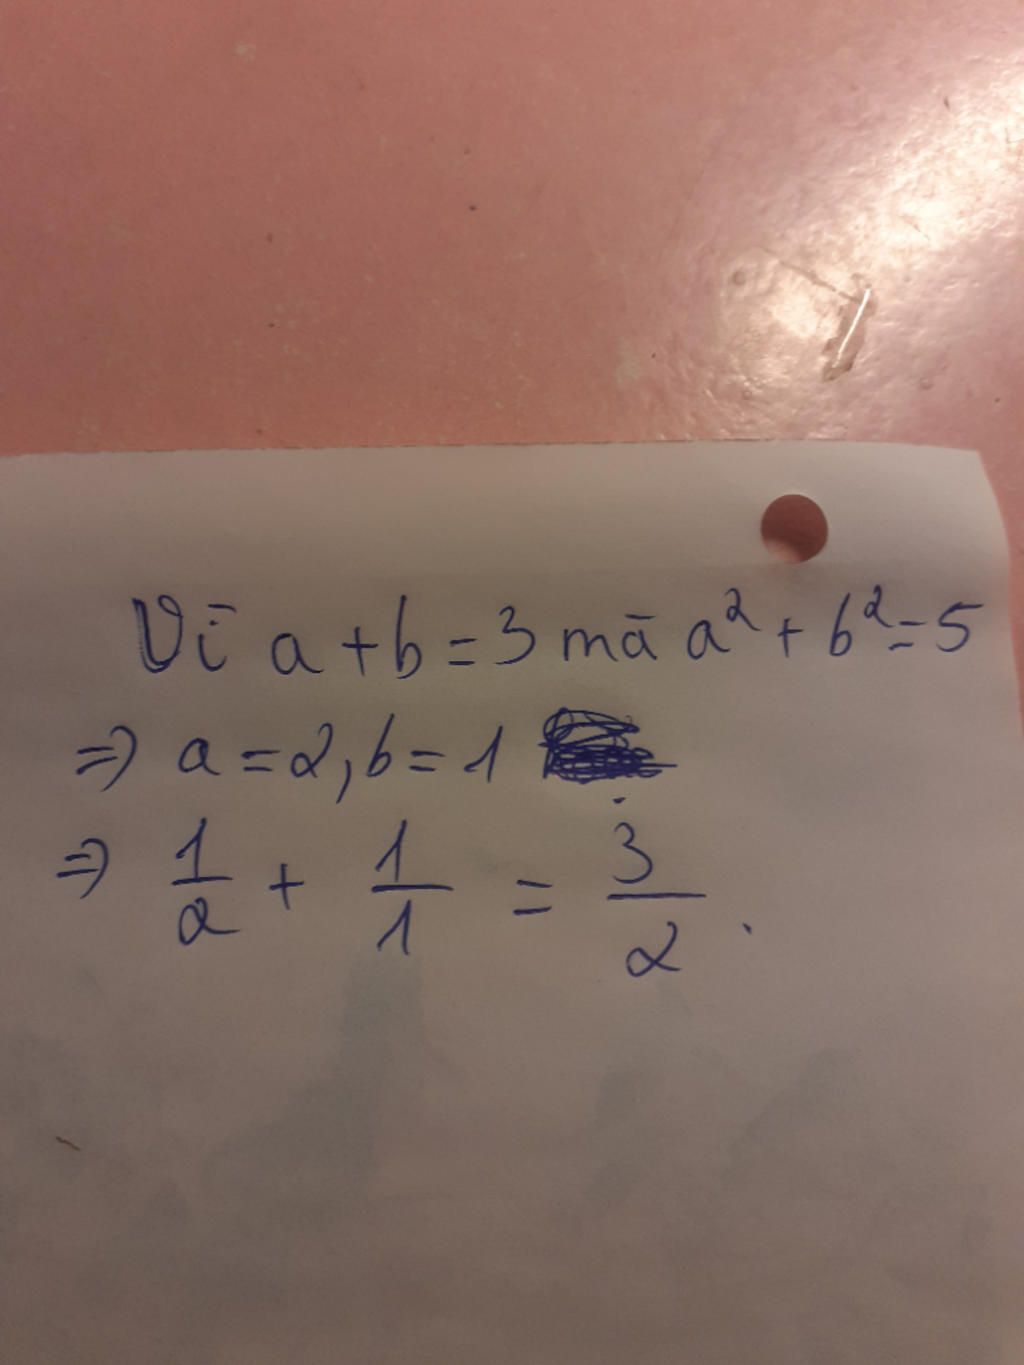 Vì a + b = 3 mà a² + b² = 5
⇒ a = 2, b = 1
⇒ 1/2 + 1/1 = 3/2.